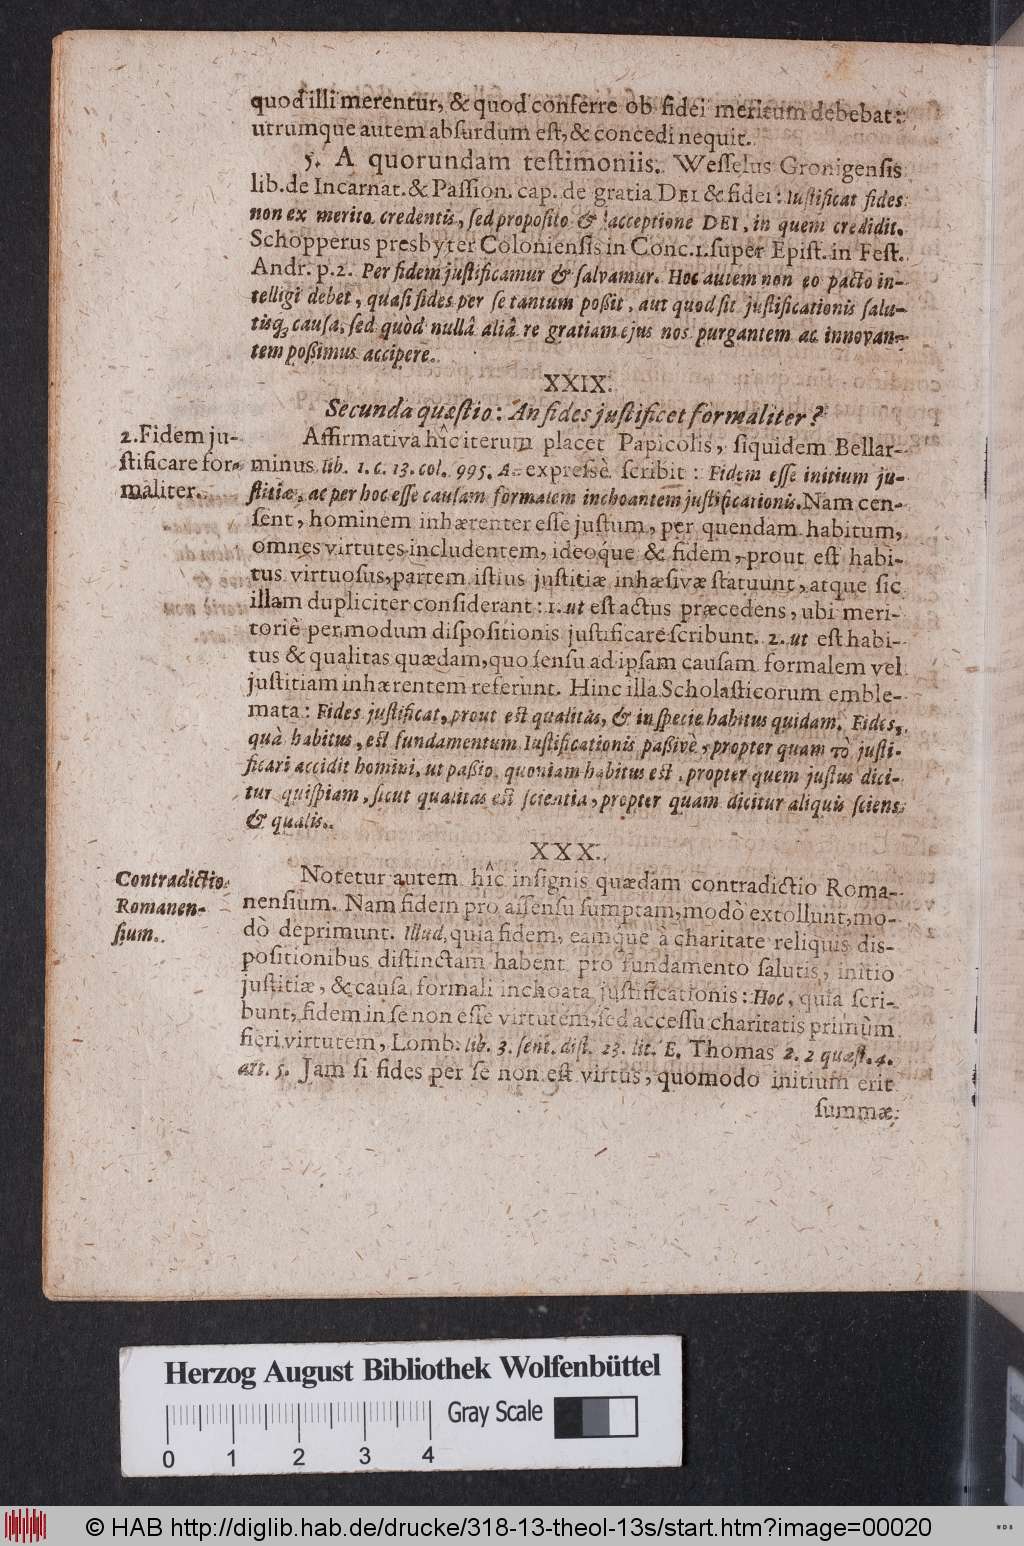 quod illi merentur, & quod conferre ob fidei meritum debebat:
utrumque autem absurdum est, & concedi nequit.
5. A quorundam testimoniis. Wesselus Gronigensis
lib. de Incarnat. & Passion. cap. de gratia DEI & fidei: Iustificat fides
non ex merito credentis, sed proposito & acceptione DEI, in quem credidit.
Schopperus presbyter Coloniensis in Conc. 1. super Epist. in Fest.
Andr. p. 2. Per fidem justificamur & salvamur. Hoc autem non eo pacto in-
telligi debet, quasi fides per se tantum poßit, aut quod sit justificationis salu-
tisq; causa, sed quòd nullâ aliâ re gratiam ejus nos purgantem ac innovan-
tem poßimus accipere.
XXIX.
Secunda quæstio: An fides justificet formaliter?
2. Fidem ju-
stificare for-
maliter.
Affirmativa hîc iterum placet Papicolis, siquidem Bellar-
minus lib. 1. c. 13. col. 995. A. expressè scribit: Fidem esse initium ju-
stitiæ, ac per hoc esse causam formalem inchoantem justificationis. Nam cen-
sent, hominem inhærenter esse justum, per quendam habitum,
omnes virtutes includentem, ideoq́ue & fidem, prout est habi-
tus virtuosus, partem istius justitiæ inhæsivæ statuunt, atque sic
illam dupliciter considerant: 1. ut est actus præcedens, ubi meri-
toriè per modum dispositionis justificare scribunt. 2. ut est habi-
tus & qualitas quædam, quo sensu ad ipsam causam formalem vel
justitiam inhærentem referunt. Hinc illa Scholasticorum emble-
mata: Fides justificat, prout est qualitas, & in specie habitus quidam. Fides,
quà habitus, est fundamentum Iustificationis paßivè, propter quam τὸ justi-
ficari accidit homini, ut paßio, quoniam habitus est, propter quem justus dici-
tur quispiam, sicut qualitas est scientia, propter quam dicitur aliquis sciens
& qualis.
XXX.
Contradictio
Romanen-
sium.
Notetur autem hîc insignis quædam contradictio Roma-
nensium. Nam fidem pro assensu sumptam, modò extollunt, mo-
dò deprimunt. Illud, quia fidem, eamq́ue à charitate reliquis dis-
positionibus distinctam habent pro fundamento salutis, initio
justitiæ, & causa formali inchoata justificationis: Hoc, quia scri-
bunt, fidem in se non esse virtutem, sed accessu charitatis primùm
fieri virtutem, Lomb. lib. 3. sent. dist. 23. lit. E. Thomas 2. 2 quæst. 4.
art. 5. Jam si fides per se non est virtus, quomodo initium erit
summæ
Herzog August Bibliothek Wolfenbüttel
Gray Scale
0 1 2 3 4
© HAB http://diglib.hab.de/drucke/318-13-theol-13s/start.htm?image=00020